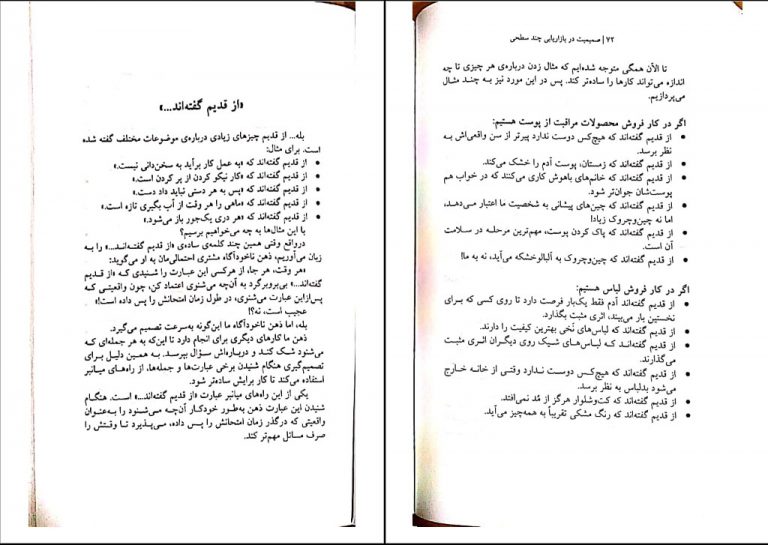 «از قدیم گفته‌اند...»
بله... از قدیم چیزهای زیادی درباره‌ی موضوعات مختلف گفته شده
است. برای مثال:
• از قدیم گفته‌اند که «به عمل کار برآید به سخن‌دانی نیست.»
• از قدیم گفته‌اند که «کار نیکو کردن از پر کردن است.»
• از قدیم گفته‌اند که «پس به هر دستی نباید داد دست.»
• از قدیم گفته‌اند که «ماهی را هر وقت از آب بگیری تازه است.»
• از قدیم گفته‌اند که «هر دری یک‌جور باز می‌شود.»
با این مثال‌ها به چه می‌خواهیم برسیم؟
درواقع وقتی همین چند کلمه‌ی ساده‌ی «از قدیم گفته‌انـد...» را به
زبان می‌آوریم، ذهن ناخودآگاه مشتری احتمالی‌مان به او می‌گوید:
«هر وقت، هر جا، از هرکسی این عبارت را شنیدی که «از قدیم
گفته‌اند...» بی‌بروبرگرد به آن‌چه می‌شنوی اعتماد کن، چون واقعیتی که
پس‌ازاین عبارت می‌شنوی، در طول زمان امتحانش را پس داده است!»
عجیب است، نه؟!
بله، اما ذهن ناخودآگاه ما این‌گونه به‌سرعت تصمیم می‌گیرد.
ذهن ما کارهای دیگری برای انجام دارد تا این‌که به هر جمله‌ای که
می‌شنود شک کنـد و درباره‌اش سـؤال بپرسـد. بـه همین دلیل برای
تصمیم‌گیری هنگام شنیدن برخی عبارت‌ها و جمله‌ها، از راه‌های میانبر
استفاده می‌کند تا کار برایش ساده‌تر شود.
یکی از این راه‌های میانبر عبارت «از قدیم گفته‌اند...» است. هنگـام
شنیدن این عبارت ذهن به‌طور خودکار آن‌چه می‌شنـود را به‌عنـوان
واقعیتی که درگذر زمان امتحانش را پس داده، می‌پـذیرد تا وقتـش را
صرف مسائل مهم‌تر کند.
۷۲ | صمیمیت در بازاریابی چند سطحی
تا الآن همگی متوجه شده‌ایم که مثال زدن درباره‌ی هر چیزی تا چه
اندازه می‌تواند کارها را ساده‌تر کند. پس در این مورد نیز به چنـد مثـال
می‌پردازیم.
اگر در کار فروش محصولات مراقبت از پوست هستیم:
• از قدیم گفته‌اند که هیچ‌کس دوست ندارد پیرتر از سن واقعی‌اش به
نظر برسد.
• از قدیم گفته‌اند که زمستان، پوست آدم را خشک می‌کند.
• از قدیم گفته‌اند که خانم‌های باهوش کاری می‌کنند که در خواب هم
پوست‌شان جوان‌تر شود.
• از قدیم گفته‌اند که چین‌های پیشانی به شخصیت ما اعتبار می‌دهـد،
اما نه چین‌وچروک زیاد!
• از قدیم گفته‌اند که پاک کردن پوست، مهم‌ترین مرحلـه در سـلامت
آن است.
• از قدیم گفته‌اند که چین‌وچروک به آلبالوخشکه می‌آید، نه به ما!
اگر در کار فروش لباس هستیم:
• از قدیم گفته‌اند آدم فقط یک‌بار فرصت دارد تا روی کسی که بـرای
نخستین بار می‌بیند، اثری مثبت بگذارد.
• از قدیم گفته‌اند که لباس‌های نُخی بهترین کیفیت را دارند.
• از قدیم گفته‌انـد کـه لبـاس‌هـای شـیک روی دیگـران اثـری مثبـت
می‌گذارند.
• از قدیم گفته‌اند که هیچ‌کس دوسـت نـدارد وقتـی از خانـه خـارج
می‌شود بدلباس به نظر برسد.
• از قدیم گفته‌اند که کت‌وشلوار هرگز از مُد نمی‌افتد.
• از قدیم گفته‌اند که رنگ مشکی تقریباً به همه‌چیز می‌آید.